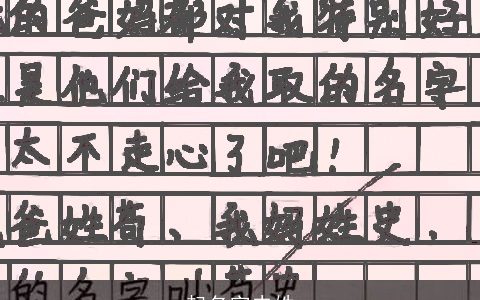 的爸妈都对我特别好
是他们给我取的名字
太不走心了吧！
爸姓苟、我妈姓史、
的名字叫苟史